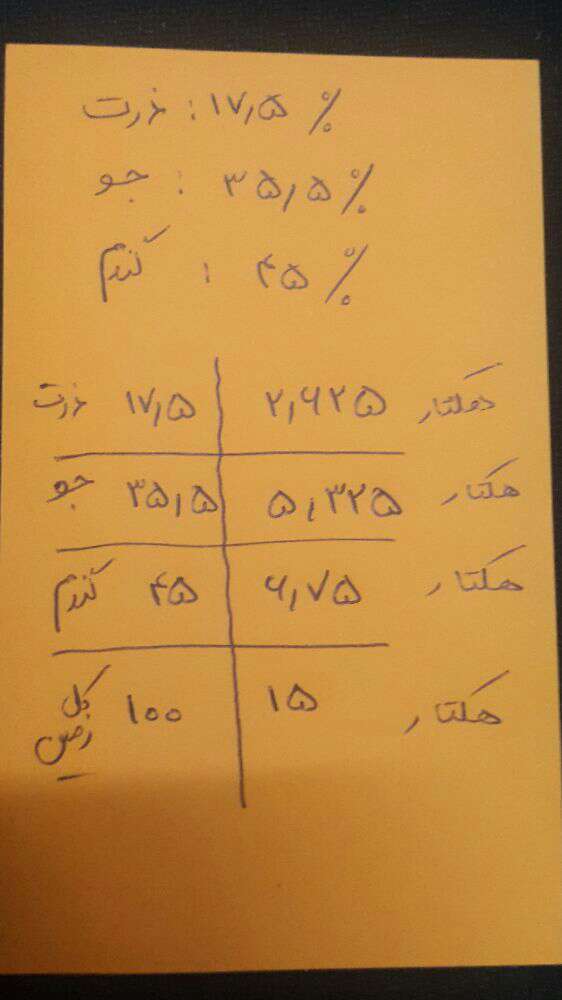 ذرت : ۱۷٫۵ %
جو : ۳۵٫۵ %
گندم : ۴۵ %
ذرت ۱۷٫۵ ۲٫۶۲۵ هکتار
جو ۳۵٫۵ ۵٫۳۲۵ هکتار
گندم ۴۵ ۶٫۷۵ هکتار
کل زمین ۱۰۰ ۱۵ هکتار